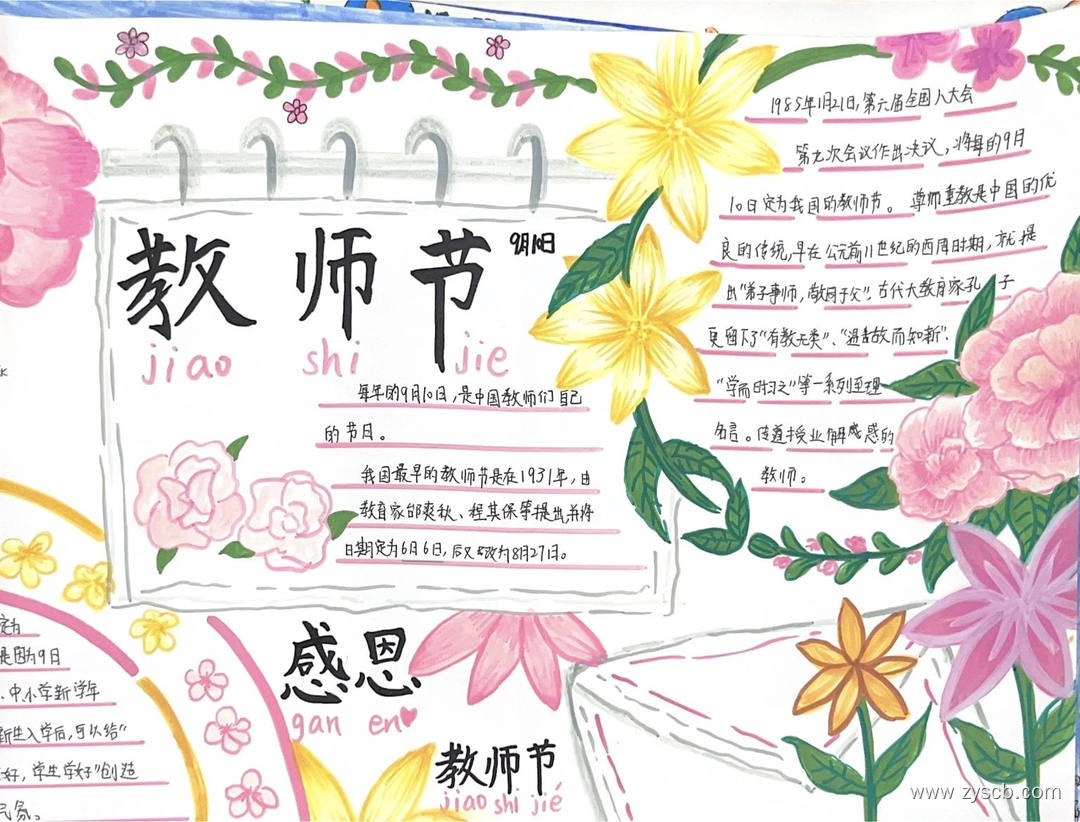 教师节
9月10日
jiao shi jie
每年的9月10日,是中国教师们自己
的节日。
我国最早的教师节是在1931年,由
教育家邰爽秋、程其保等提出并将
日期定为6月6日,后又改为8月27日。
1985年1月21日,第六届全国人大会
第九次会议作出决议,将每的9月
10日定为我国的教师节。尊师重教是中国的优
良的传统,早在公元前11世纪的西周时期,就提
出"弟子事师,敬同于父",古代大教育家孔子
更留下了"有教无类"、"温故而知新"、
"学而时习之"等一系列至理
名言。传道授业解惑的
教师。
是因为9日
、中小学新学年
新生入学后,可以给"
好,学生学好"创造
感恩
gan en
教师节
jiao shi jié
www.zyscb.com